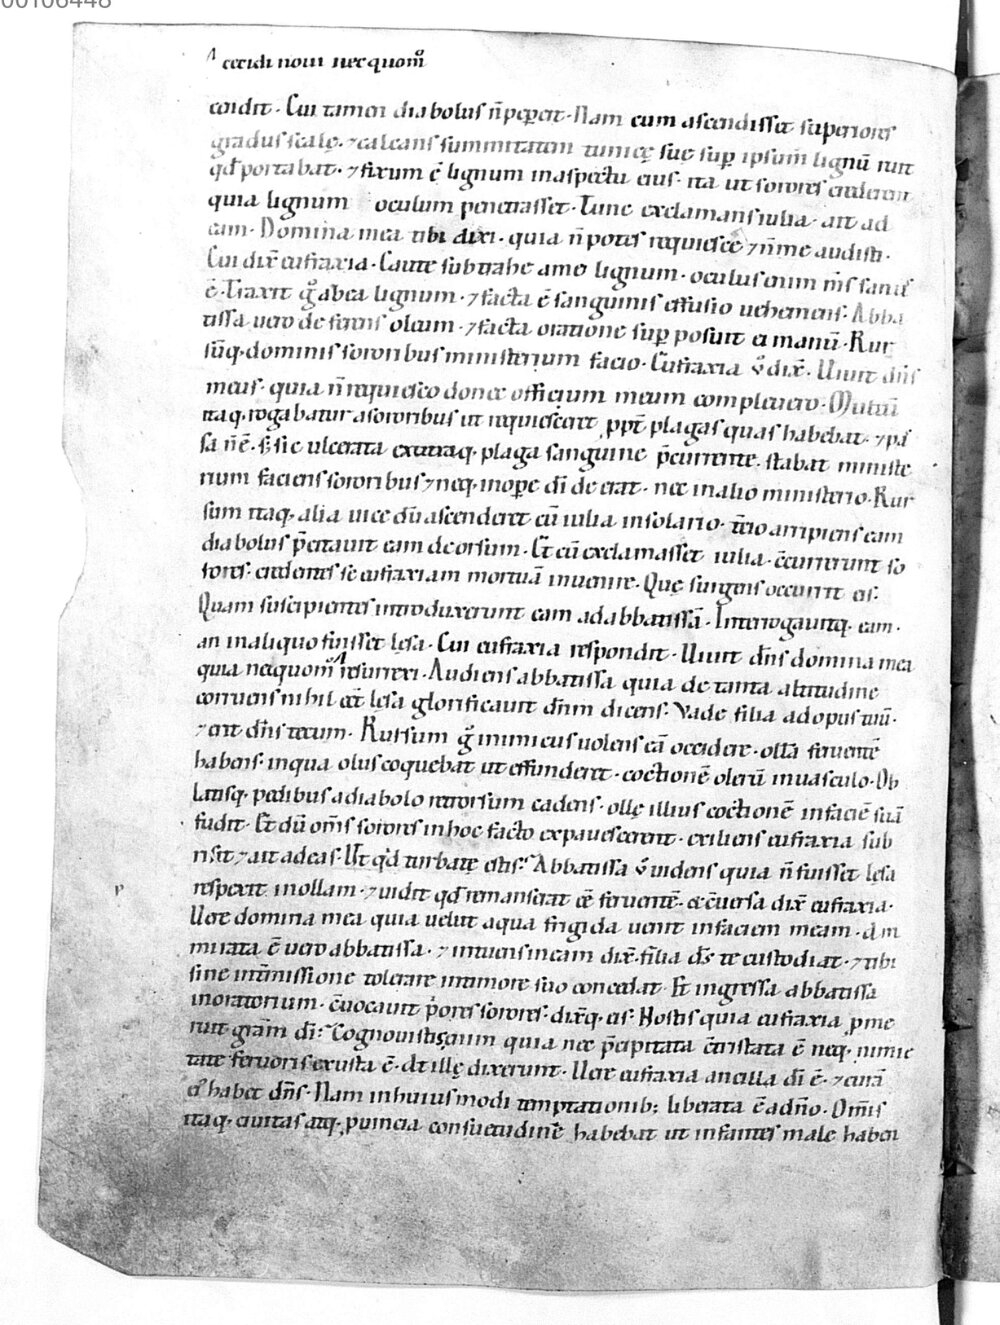 00106448
cecidi noui nec quom̊
cendit. Cui tamen diabolus n̄ peꝑcit. Nam cum ascendisset superiores
gradus scalę. ⁊ calcans summitatem tunicę suę suꝑ ipsum lignū ruit
qđ portabat. ⁊ fixum ē lignum in aspectu eius. ita ut sorores crederent
quia lignum oculum penetrasset. Tunc exclamans iulia. ait ad
eam. Domina mea tibi dixi. quia n̄ potes requiesce ⁊ n̄ me audisti.
Cui dix̄ eufraxia. Caute subtrahe a me lignum. oculus enim m̄s sanus
ē. Traxit g̊ ab ea lignum. ⁊ facta ē sanguinis effusio uehemens. Abba
tissa uero deferens oleum. ⁊ facta oratione suꝑposuit ei manū. Rur
sūq. dominis sororibus ministerium facio. Eufraxia v̊ dix̄. Uiuit dn̄s
meus. quia n̄ requiesco donec officium meum compleuero. Multū
itaq. rogabatur a sororibus ut requiesceret ꝓpt̄ plagas quas habebat. ⁊ pas
sa n̄ ē. s; sic ulcerata ex utraq. plaga sanguine p̄currente. stabat ministe
rium faciens sororibus ⁊ neq. in oꝑe dī deerat. nec in alio ministerio. Rur
sum itaq. alia uice dū ascenderet cū iulia in solario. t̄cio arripiens eam
diabolus p̄citauit eam deorsum. Et cū exclamasset iulia. c̄currerunt so
rores. credentes se eufraxiam mortuā inuenire. Quę surgens occurrit eis.
Quam suscipientes introduxerunt eam ad abbatissā. Interrogauitq. eam.
an in aliquo fuisset lęsa. Cui eufraxia respondit. Uiuit dn̄s domina mea
quia nec quom̊ resurrexi. Audiens abbatissa quia de tanta altitudine
corruens nihil eēt lęsa glorificauit dn̄m dicens. Vade filia ad opus tuū.
⁊ erit dn̄s tecum. Rursum g̊ inimicus uolens eā occidere. ollā feruentē
habens. in qua olus coquebat ut effunderet. coctionē olerū in uasculo. Ob
litusq. pedibus a diabolo retrorsum cadens. ollę illius coctionē in faciē suā
fudit. Et dū om̄s sorores in hoc facto expauescerent. exiliens eufraxia sub
risit ⁊ ait ad eas. Ut qđ turbatę estis. Abbatissa v̊ uidens quia n̄ fuisset lęsa
respexit in ollam. ⁊ uidit qđ remanserat eē feruentē. & c̄uersa dix̄ eufraxia.
Uere domina mea quia uelut aqua frigida uenit in faciem meam. Am
mirata ē uero abbatissa. ⁊ intuens in eam dix̄. filia d̄s te custodiat. ⁊ tibi
sine int̄missione tolerare in timore suo concedat. Et ingressa abbatissa
in oratorium. c̄uocauit p̊ores sorores. dix̄q. eis. Nostis quia eufraxia ꝓme
ruit grām dī. Cognouistis enim quia nec p̄cipitata c̄tristata ē neq. nimie
tate feruoris exusta ē. At illę dixerunt. Uere eufraxia ancilla dī ē. ⁊ curā
ei habet dn̄s. Nam in huiusmodi temptationib; liberata ē a dn̄o. Om̄is
itaq. ciuitas atq. ꝓuincia consuetudinē habebat ut infantes male haben